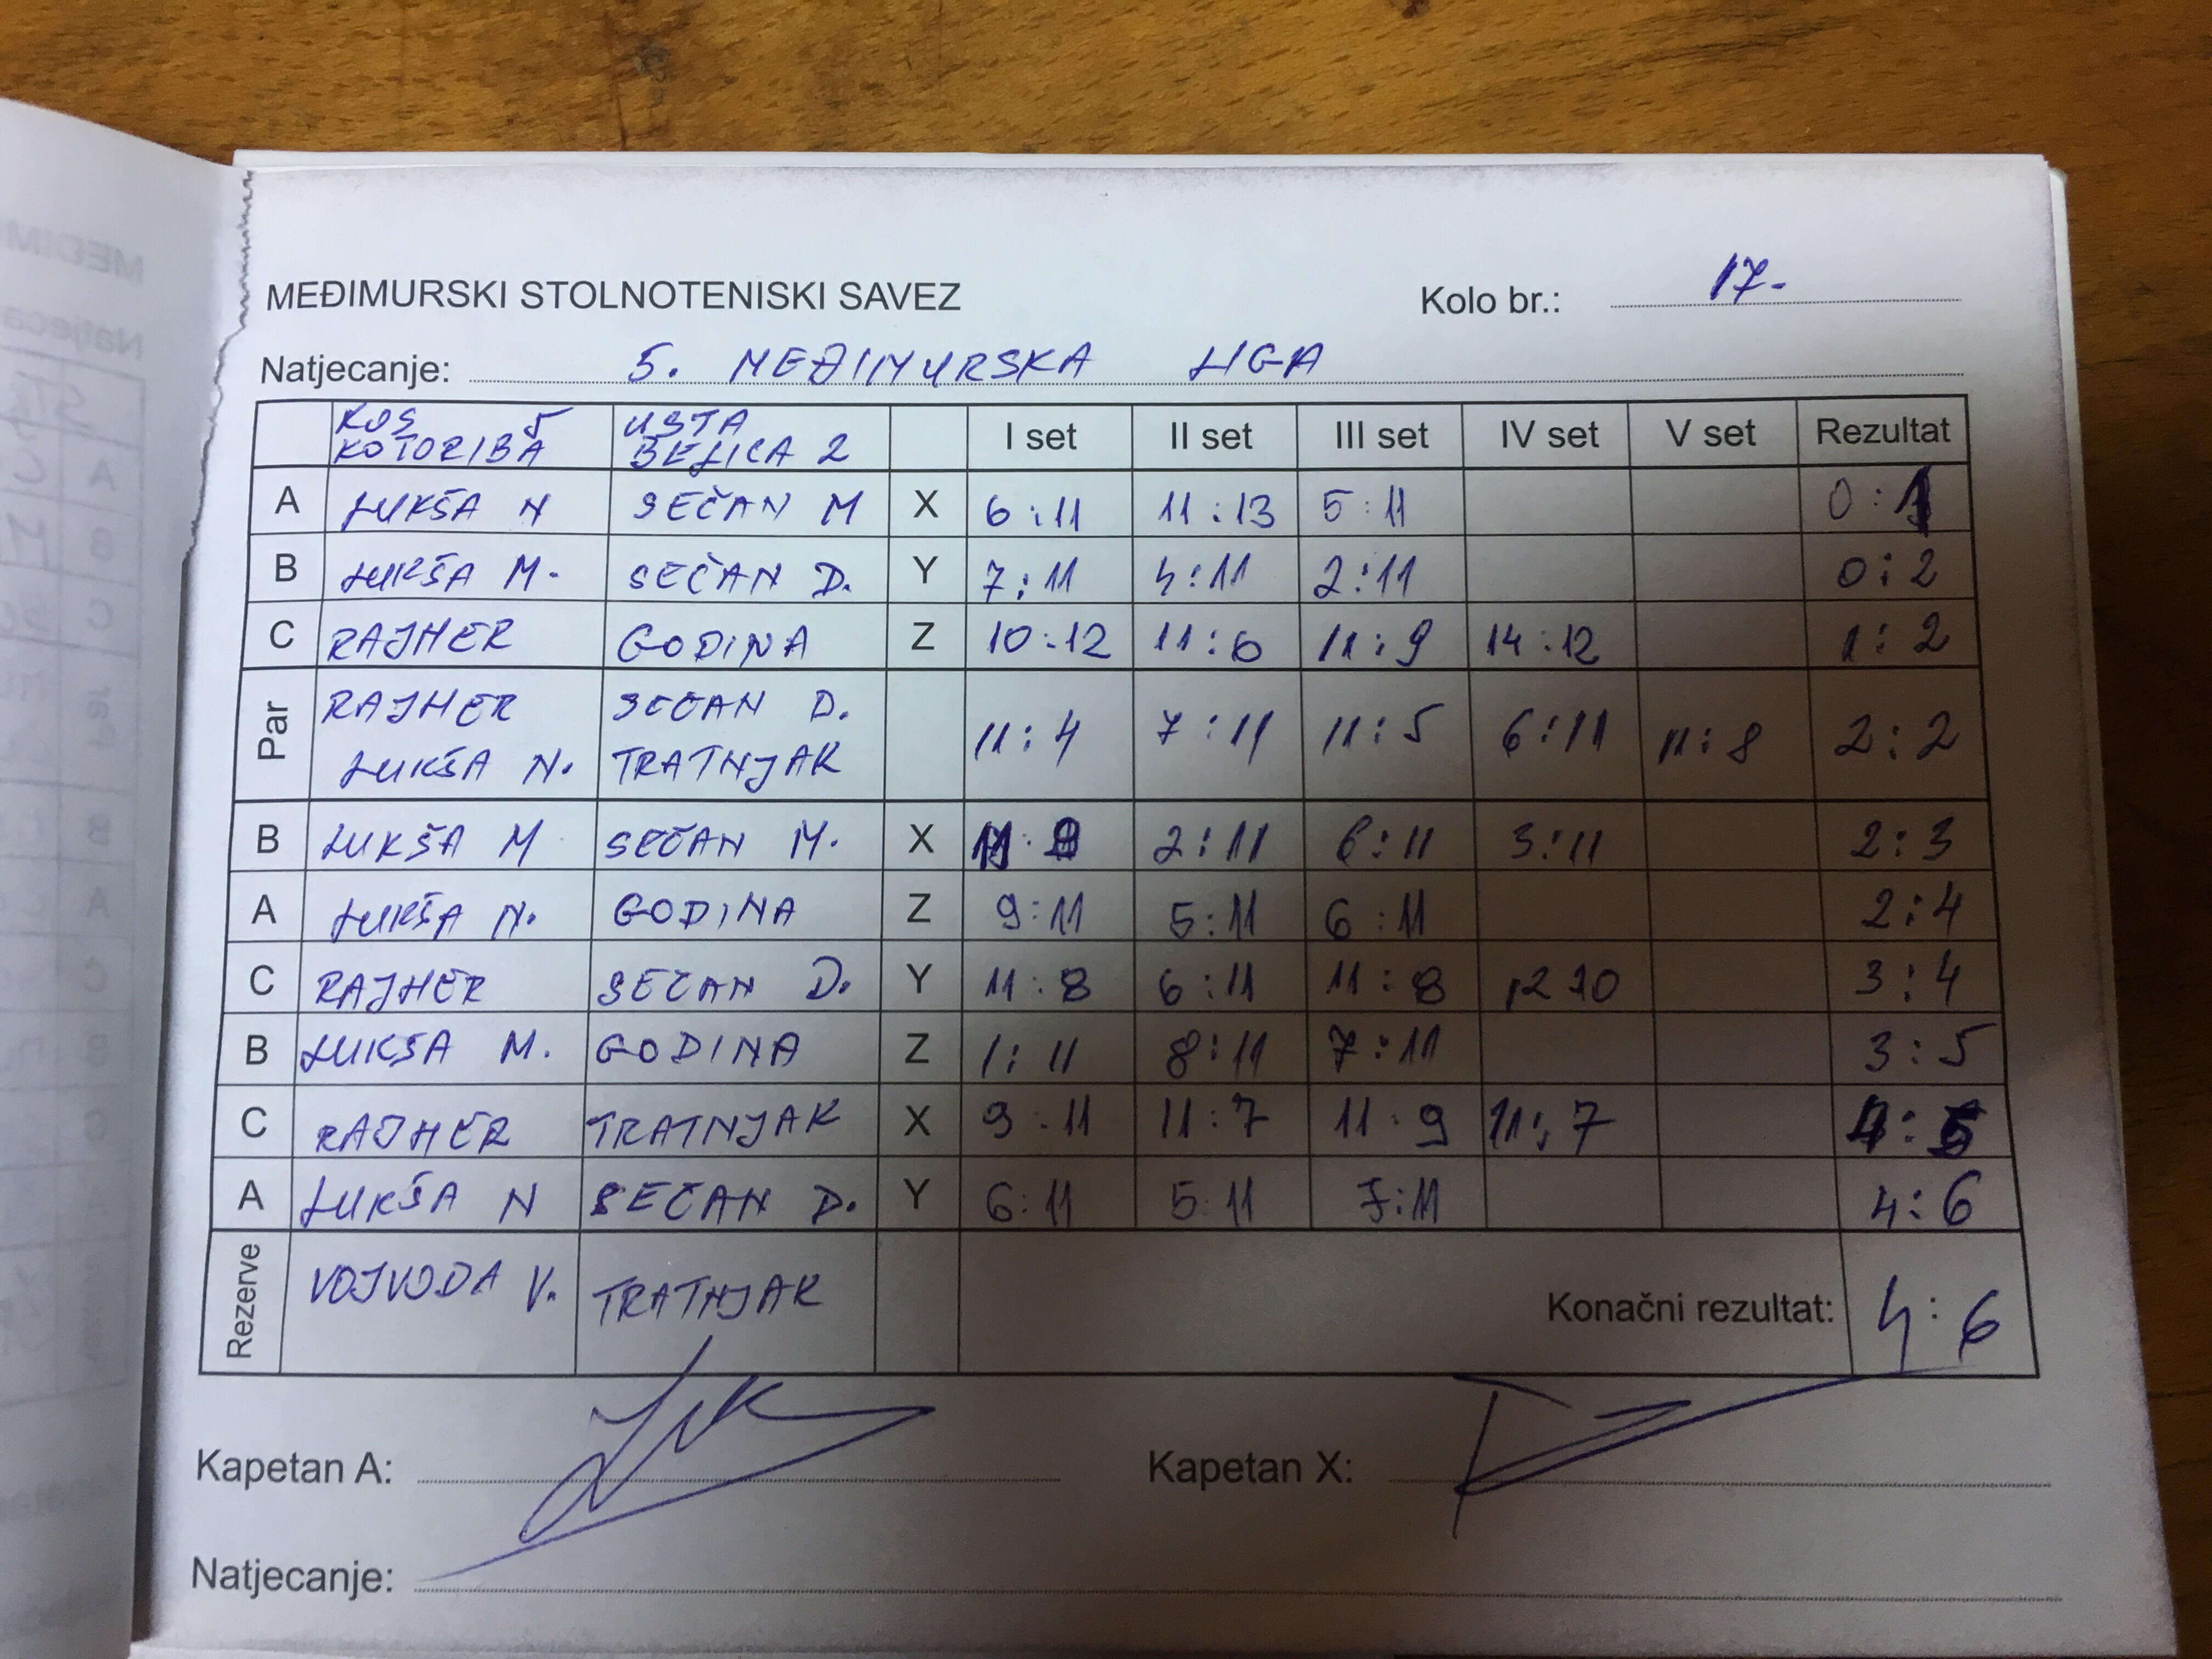 MEĐIMURSKI STOLNOTENISKI SAVEZ Kolo br.: 17.
Natjecanje: 5. MEĐIMURSKA LIGA
KOS 5 KOTORIBA USTA BELICA 2 I set II set III set IV set V set Rezultat
A LUKŠA N SEČAN M X 6:11 11:13 5:11 0:1
B LUKŠA M. SEČAN D. Y 7:11 4:11 2:11 0:2
C RAJHER GODINA Z 10:12 11:6 11:9 14:12 1:2
Par RAJHER SEČAN D. 11:4 7:11 11:5 6:11 11:8 2:2
LUKŠA N. TRATNJAK
B LUKŠA M SEČAN M. X 2:11 6:11 3:11 2:3
A LUKŠA N. GODINA Z 9:11 5:11 6:11 2:4
C RAJHER SEČAN D. Y 11:8 6:11 11:8 12 10 3:4
B LUKŠA M. GODINA Z 1:11 8:11 7:11 3:5
C RAJHER TRATNJAK X 9:11 11:7 11:9 11:7 4:5
A LUKŠA N SEČAN D. Y 6:11 5:11 7:11 4:6
Rezerve VOJVODA V. TRATNJAK Konačni rezultat: 4:6
Kapetan A: Kapetan X:
Natjecanje: